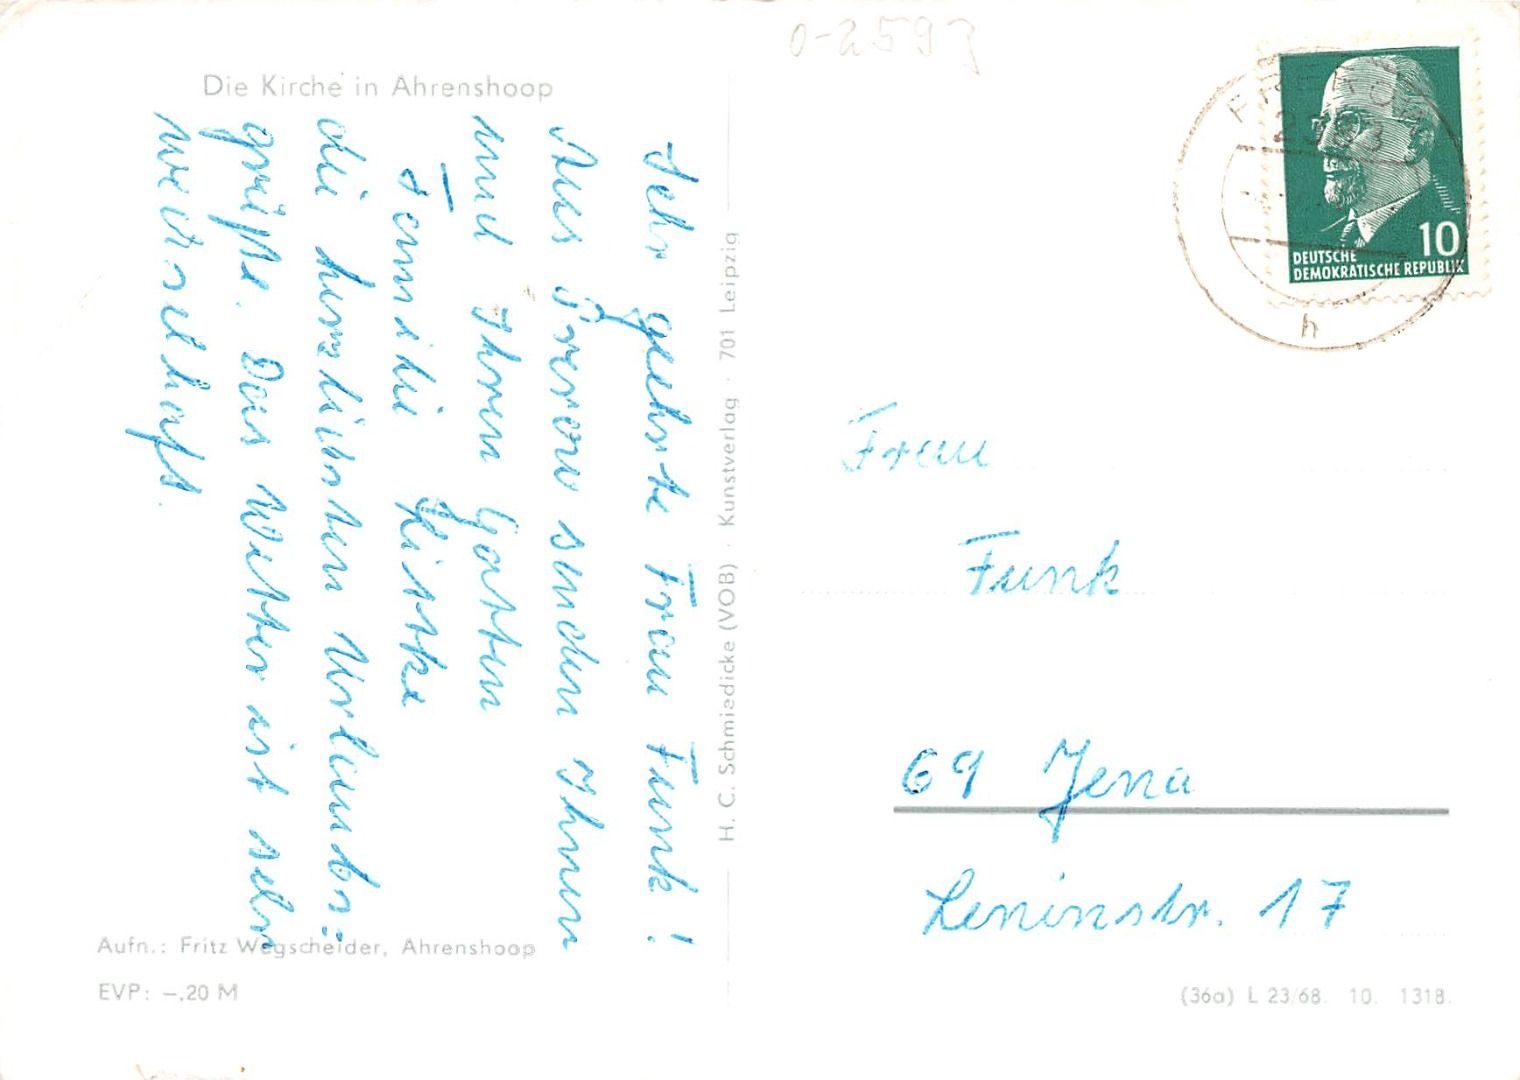 0-2593
Die Kirche in Ahrenshoop
Sehr geehrte Frau Funk!
Aus Prerow senden Ihnen
und Ihren Gatten
Familie
die herzlichsten Urlaubs=
grüße. Das Wetter ist sehr
wechselhaft.
Aufn.: Fritz Wegscheider, Ahrenshoop
EVP: –,20 M
H. C. Schmiedicke (VOB) · Kunstverlag · 701 Leipzig
10
DEUTSCHE
DEMOKRATISCHE REPUBLIK
h
Frau
Funk
69 Jena
Leninstr. 17
(36a) L 23/68. 10. 1318.